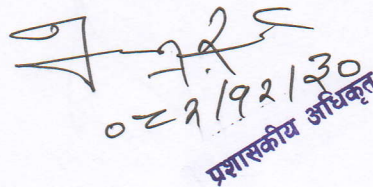 ०८२/१२/३०
प्रशासकीय अधिकृत